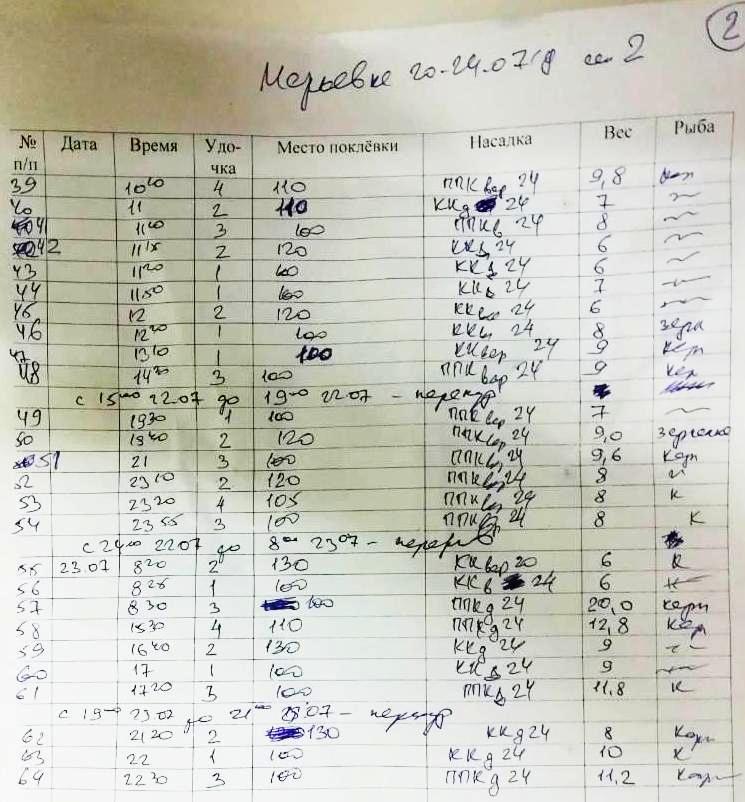 2
Марьевка 20-24.07 2
№ п/п Дата Время Удо-чка Место поклёвки Насадка Вес Рыба
39 10 20 4 110 ППК вар 24 9,8
40 11 2 110 ККд 24 7 ~
41 11 00 3 100 ППКв 24 8 ~
42 11 15 2 120 24 6 ~
43 11 20 1 100 24 6 ~
44 11 50 1 100 24 7 ~
45 12 2 120 24 6 ~
46 12 20 1 100 24 8 зерка
47 13 10 1 100 ККвар 24 9 карп
48 14 30 3 100 ППКвар 24 9 кар
с 15 00 22.07 до 19 00 22.07 - перекур
49 19 30 1 100 ППКвар 24 7 ~
50 19 40 2 120 ППКвар 24 9,0
51 21 3 100 ППКвар 24 9,6 карп
52 23 10 2 120 ППКвар 24 8 ~
53 23 20 4 105 ППКвар 24 8 к
54 23 55 3 100 ППКвар 24 8 к
с 24 00 22.07 до 8 00 23.07 - перерыв
55 23.07 8 20 2 130 ККвар 20 6 к
56 8 25 1 100 ККв 24 6 к
57 8 30 3 100 ППКд 24 20,0 карп
58 15 30 4 110 ППКд 24 12,8 кар
59 16 40 2 130 ККд 24 9 ~
60 17 1 100 ККд 24 9 ~
61 17 20 3 100 ППКд 24 11,8 к
с 19 00 23.07 до 21 00 23.07 - перекур
62 21 20 2 130 ККд 24 8 карп
63 22 1 100 ККд 24 10 к
64 22 30 3 100 ППКд 24 11,2 карп